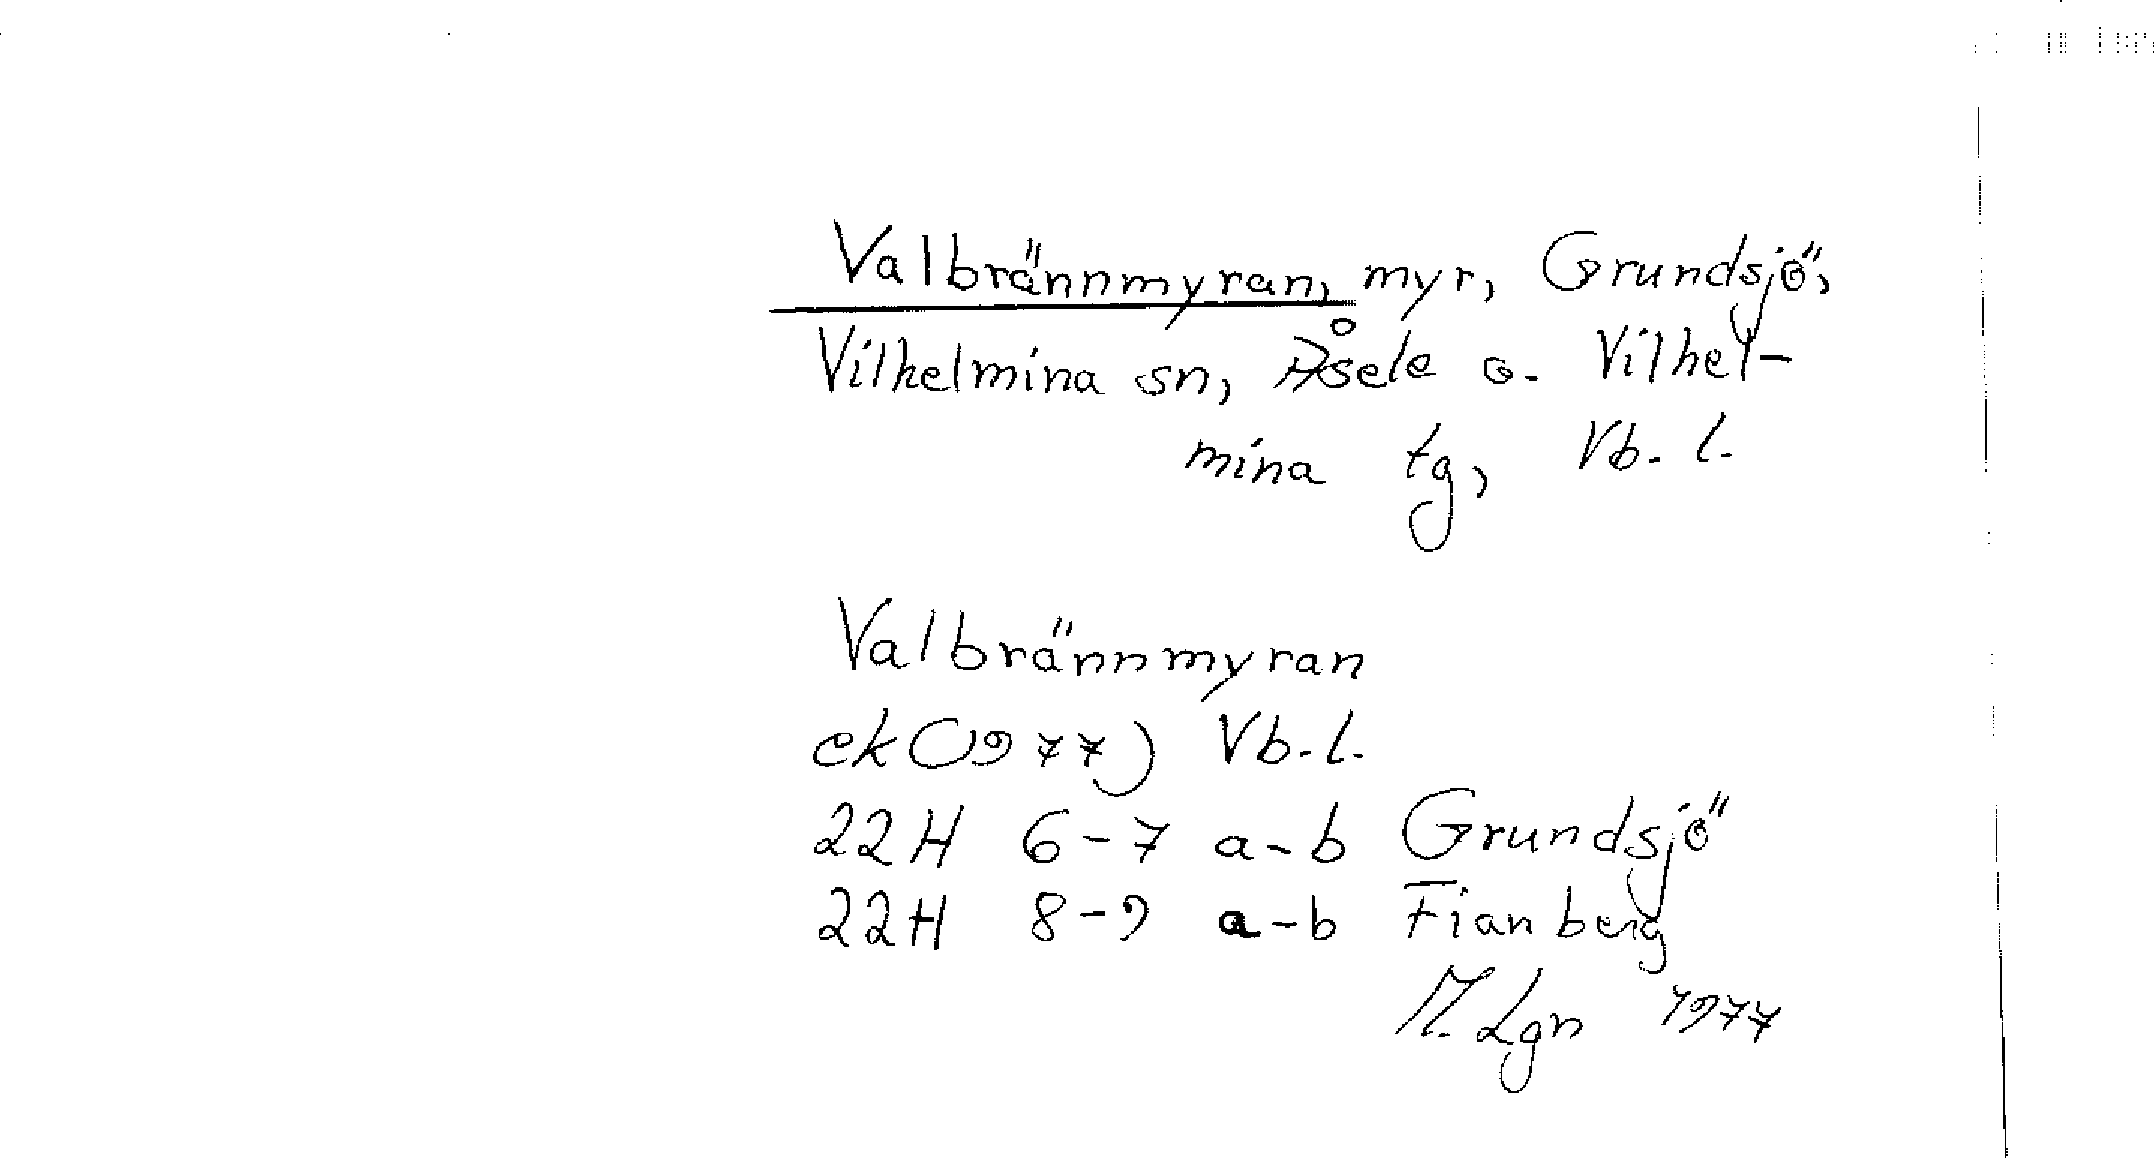 Valbrännmyran, myr, Grundsjö,
Vilhelmina sn, Åsele o. Vilhel-
mina tg, Vb. l.
Valbrännmyran
ek (1977) Vb. l.
22H 6-7 a-b Grundsjö
22H 8-9 a-b Fianberg
M. Lgn 1977